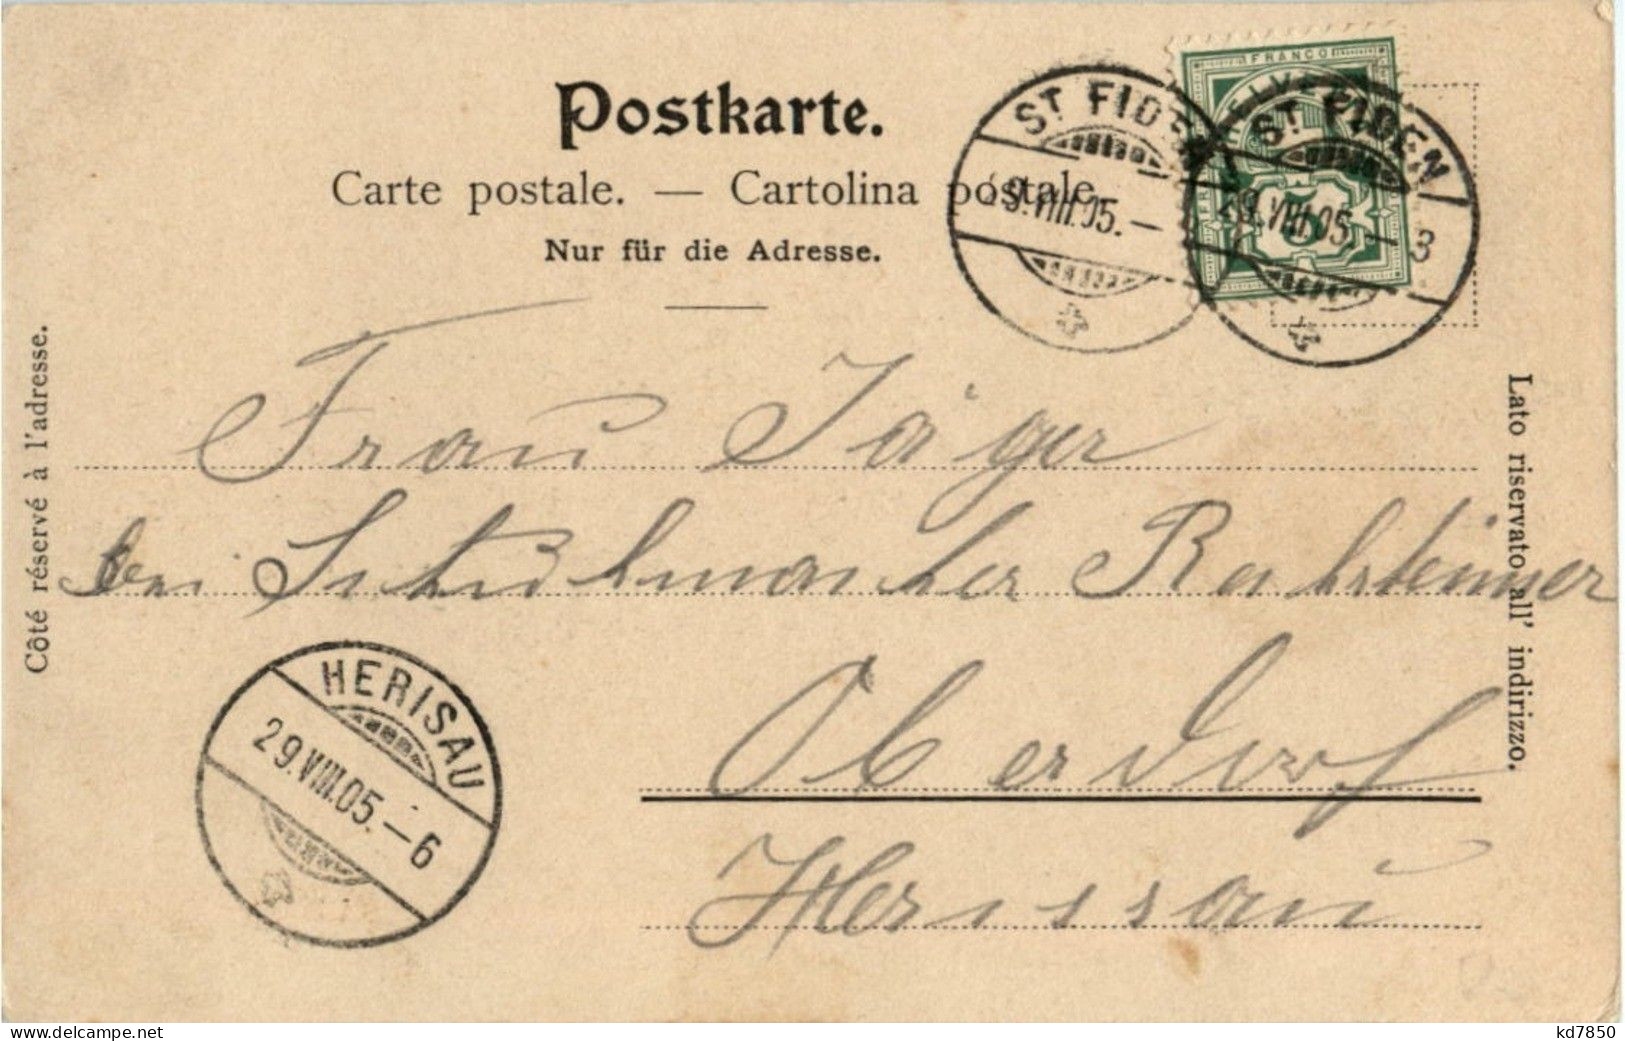 Postkarte.
Carte postale. — Cartolina postale.
Nur für die Adresse.
FRANCO
HELVETIA
5
ST. FIDEN
29.VIII.05.–
ST. FIDEN
29.VIII.05.–3
Côté réservé à l'adresse.
Lato riservato all' indirizzo.
Frau Jäger
bei Schuhmacher
Oberdorf
Herisau
HERISAU
29.VIII.05.–6
www.delcampe.net
kd7850